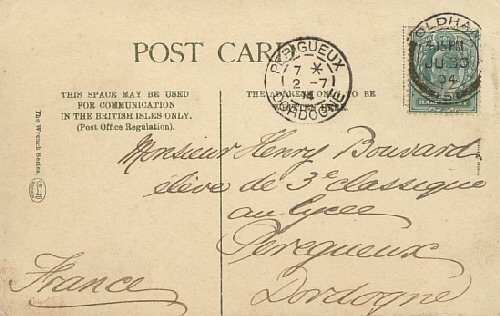 POST CARD
THIS SPACE MAY BE USED
FOR COMMUNICATION
IN THE BRITISH ISLES ONLY.
(Post Office Regulation).
THE ADDRESS ONLY TO BE
The Wrench Series
PERIGUEUX
7 *
2 -7
DORDOGNE
OLDHAM
JU 30
04
HALF
Monsieur Henry Bouvard
élève de 3e classique
au lycée
Peregueux
Dordogne
France